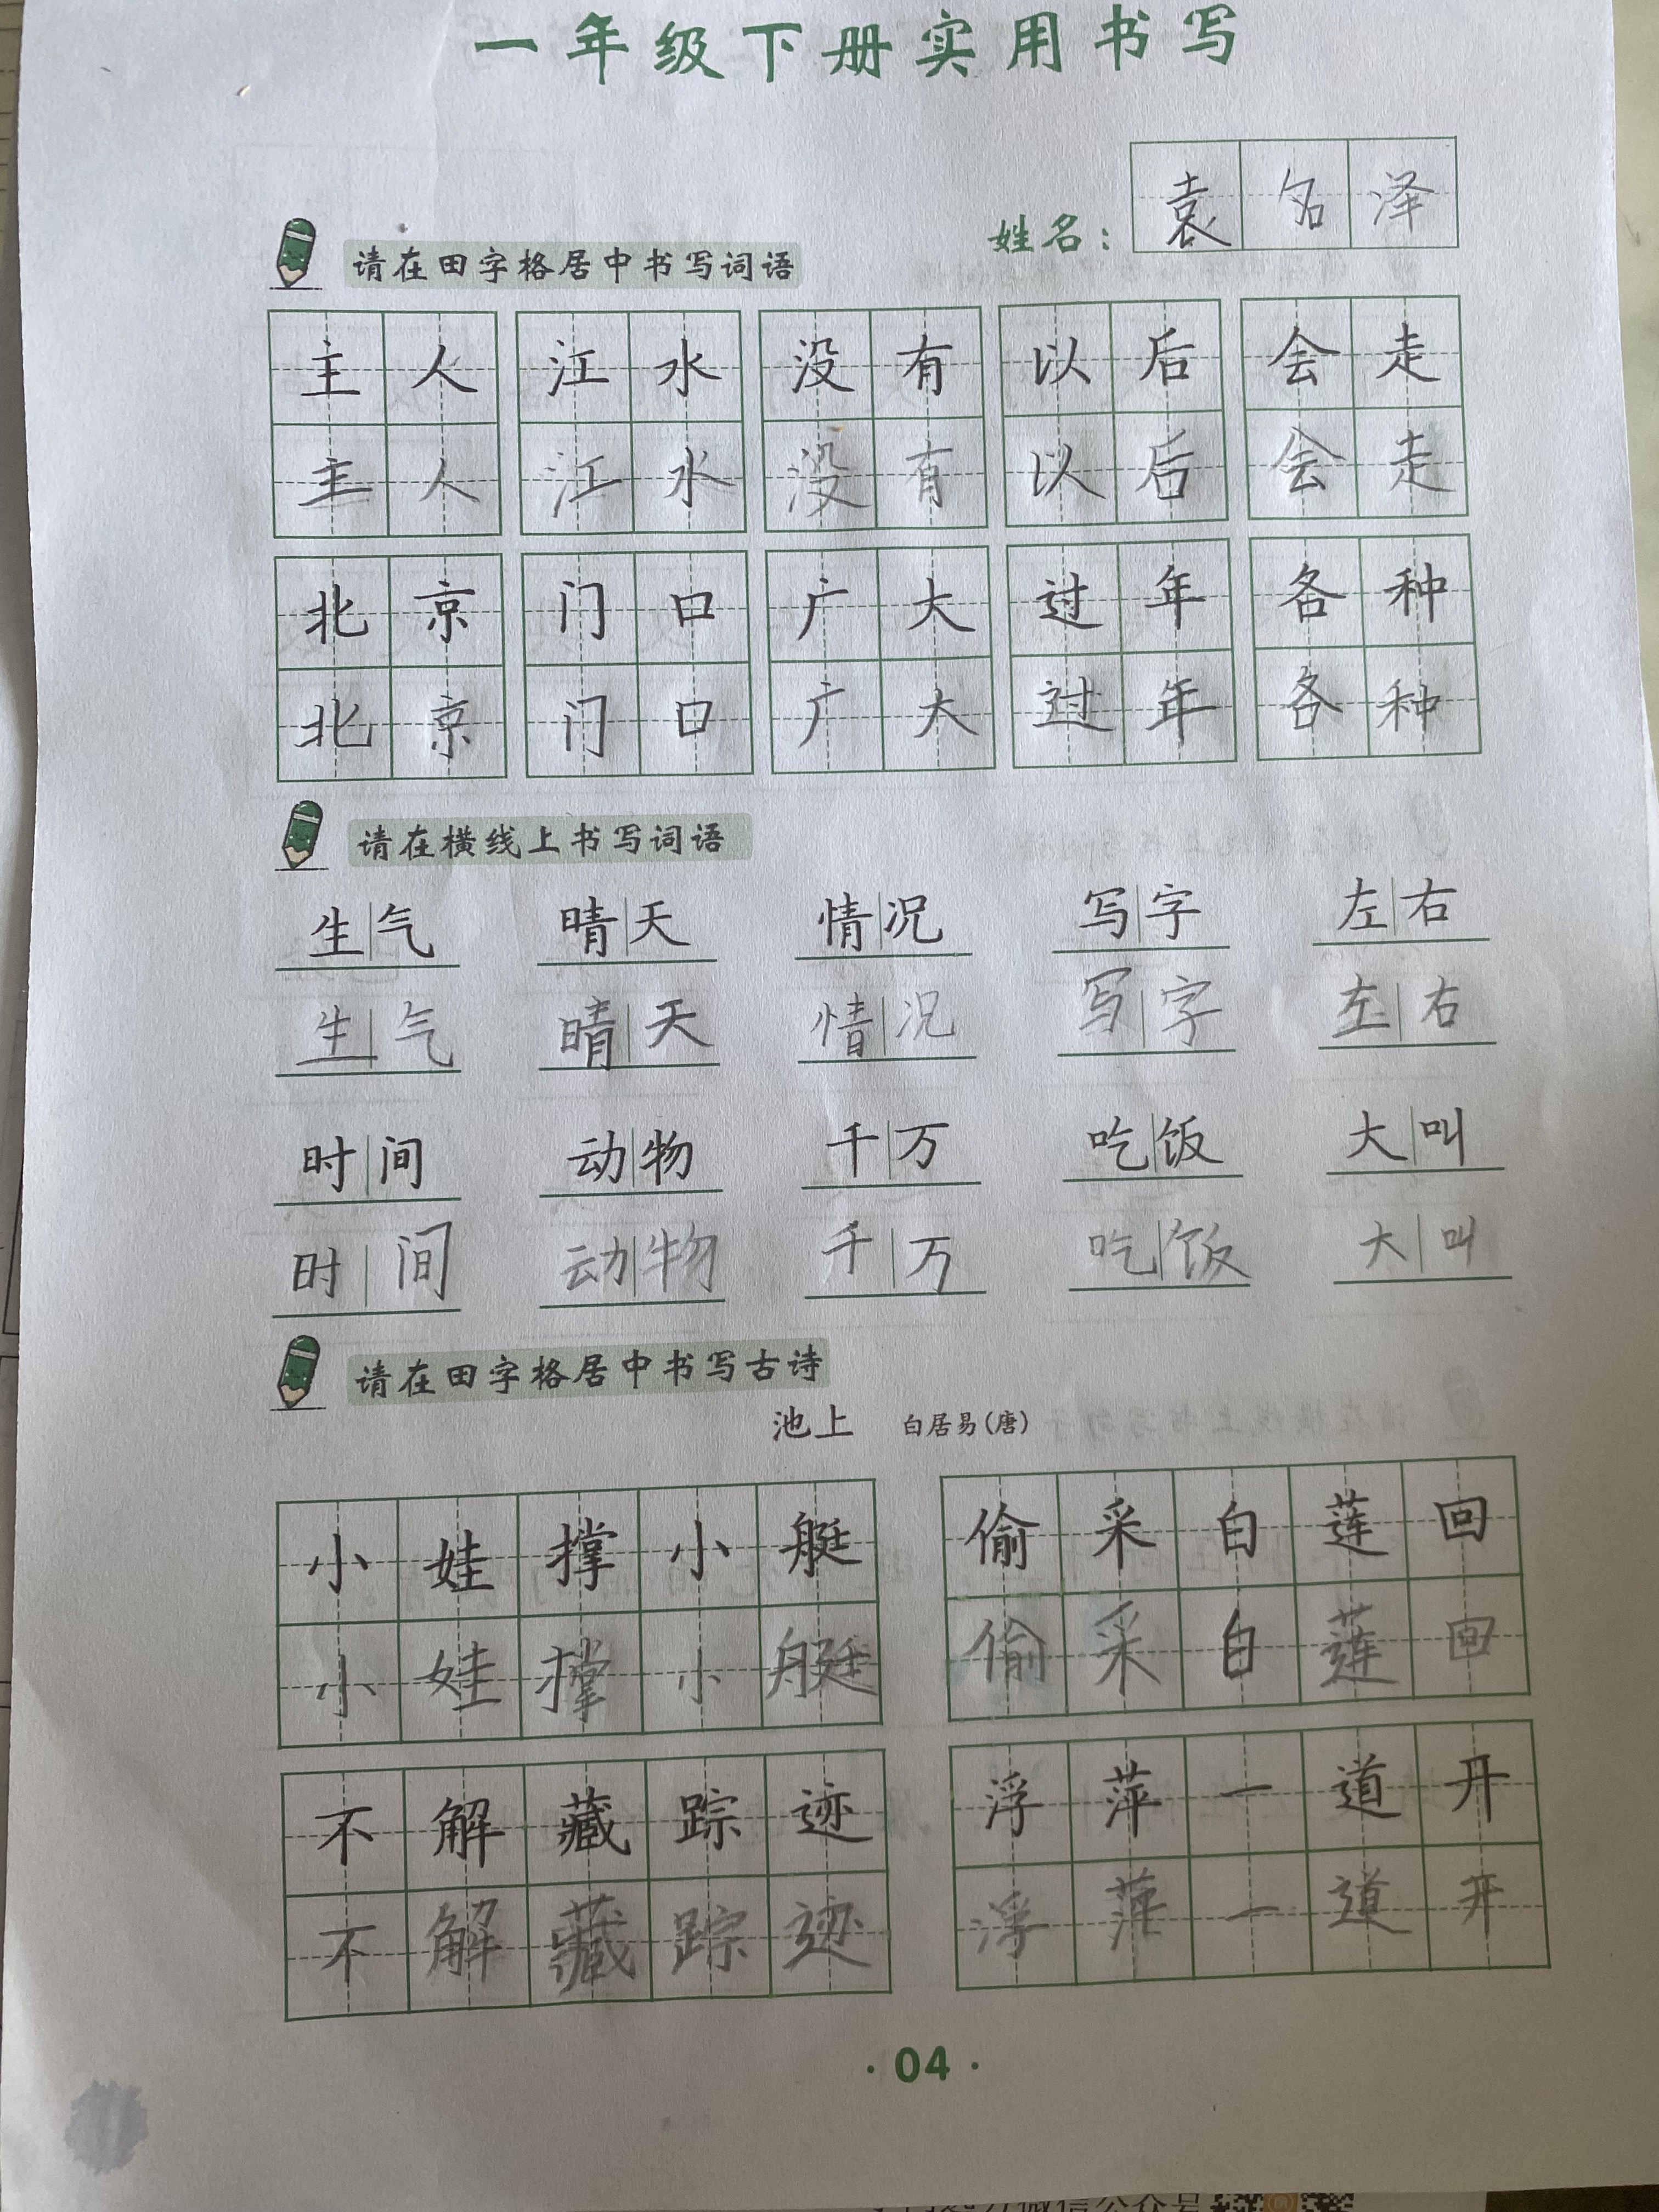 一年级下册实用书写
姓名：袁名泽
请在田字格居中书写词语
主人 江水 没有 以后 会走
主人 江水 没有 以后 会走
北京 门口 广大 过年 各种
北京 门口 广大 过年 各种
请在横线上书写词语
生气 晴天 情况 写字 左右
生气 晴天 情况 写字 左右
时间 动物 千万 吃饭 大叫
时间 动物 千万 吃饭 大叫
请在田字格居中书写古诗
池上 白居易(唐)
小娃撑小艇 偷采白莲回
小娃撑小艇 偷采白莲回
不解藏踪迹 浮萍一道开
不解藏踪迹 浮萍一道开
·04·